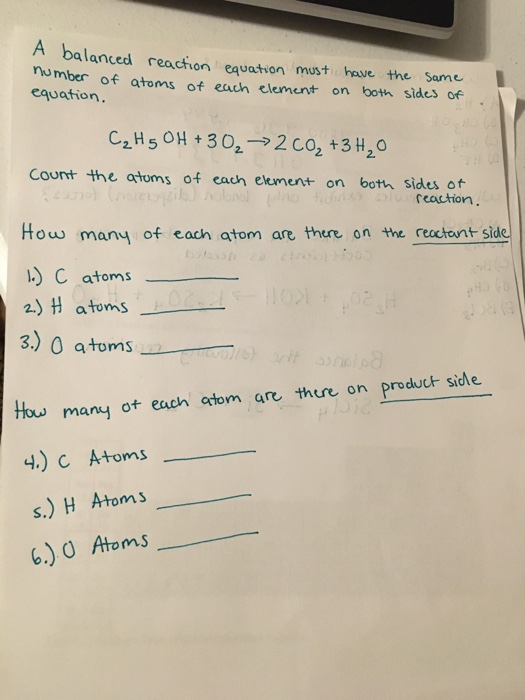 A balanced reaction equation must have the same
number of atoms of each element on both sides of
equation.
C₂H₅OH + 3O₂ → 2CO₂ + 3H₂O
Count the atoms of each element on both sides of
reaction.
How many of each atom are there on the reactant side
1.) C atoms
2.) H atoms
3.) O atoms
How many of each atom are there on product side
4.) C Atoms
5.) H Atoms
6.) O Atoms